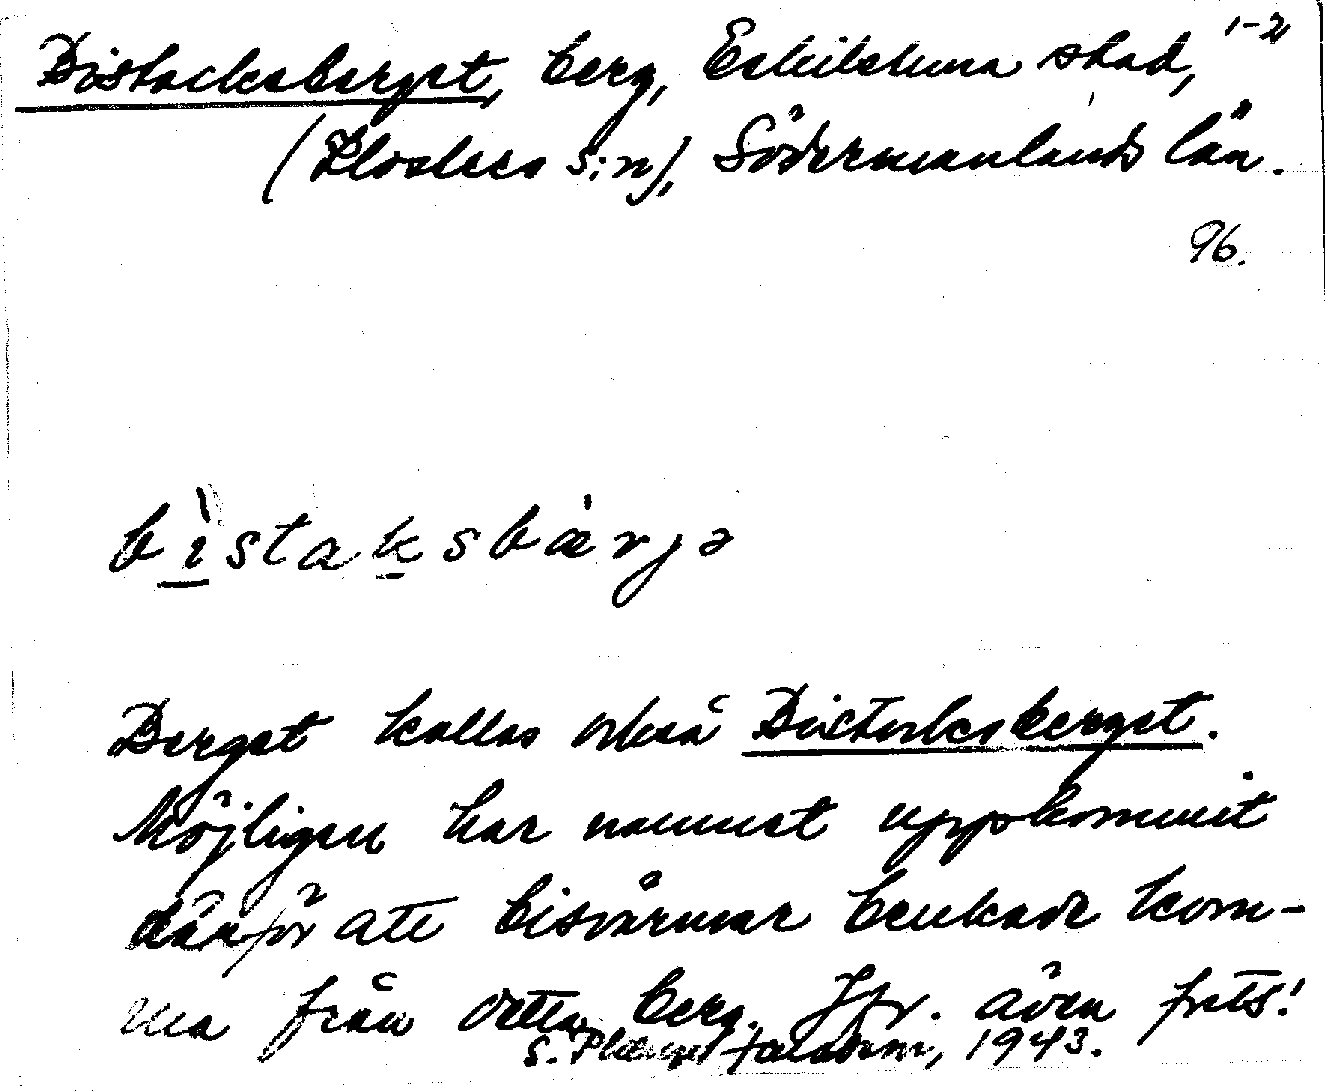 Bistacksberget, berg, Eskilstuna stad, 1-2
(Klosters s:n), Södermanlands län.
96.
bistaksbærjə
Berget kallas också Bistocksberget.
Möjligen har namnet uppkommit
därför att bisvärmar brukade kom-
ma från detta berg. Jfr. även forts!
S. 1943.